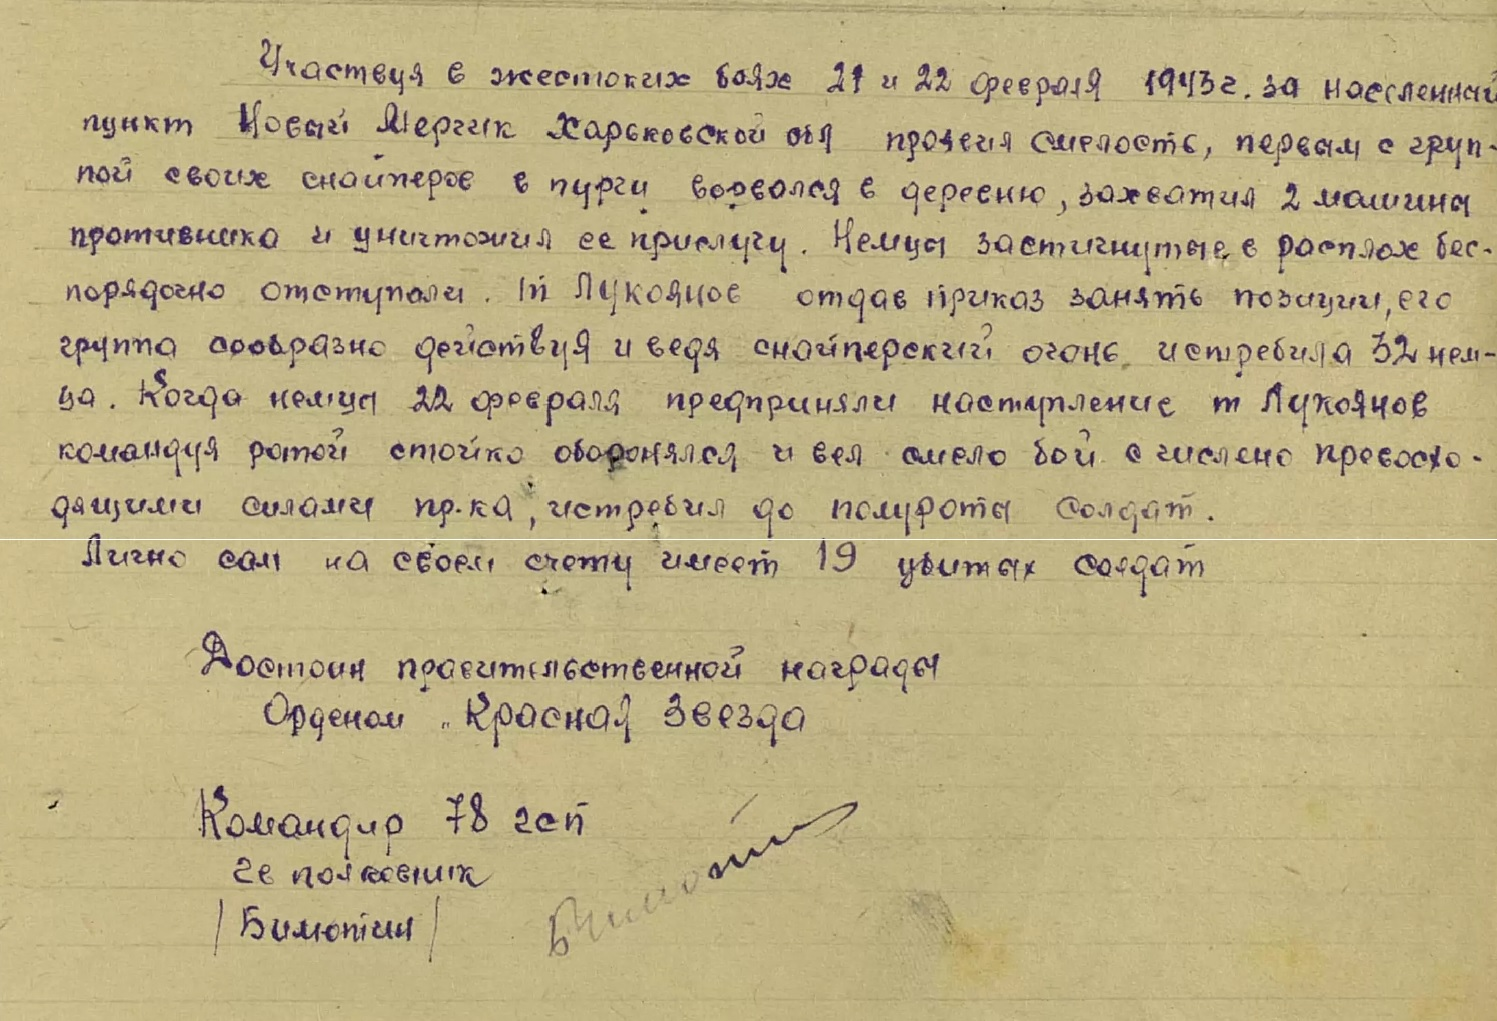 Участвуя в жестоких боях 21 и 22 февраля 1943 г. за населенный
пункт Новый Мерчик Харьковской обл проявил смелость, первым с груп-
пой своих снайперов в пургу ворвался в деревню, захватил 2 машины
противника и уничтожил ее прислугу. Немцы застигнутые в расплох бес-
порядочно отступали. т Лукоянов отдав приказ занять позиции, его
группа сообразно действуя и ведя снайперский огонь истребила 32 нем-
ца. Когда немцы 22 февраля предприняли наступление т Лукоянов
командуя ротой стойко оборонялся и вел смело бой с числено превосхо-
дящими силами пр-ка, истребил до полурота солдат.
Лично сам на своем счету имеет 19 убитых солдат
Достоин правительственной награды
Орденом "Красная Звезда
Командир 78 гсп
гв полковник
/Билютин/